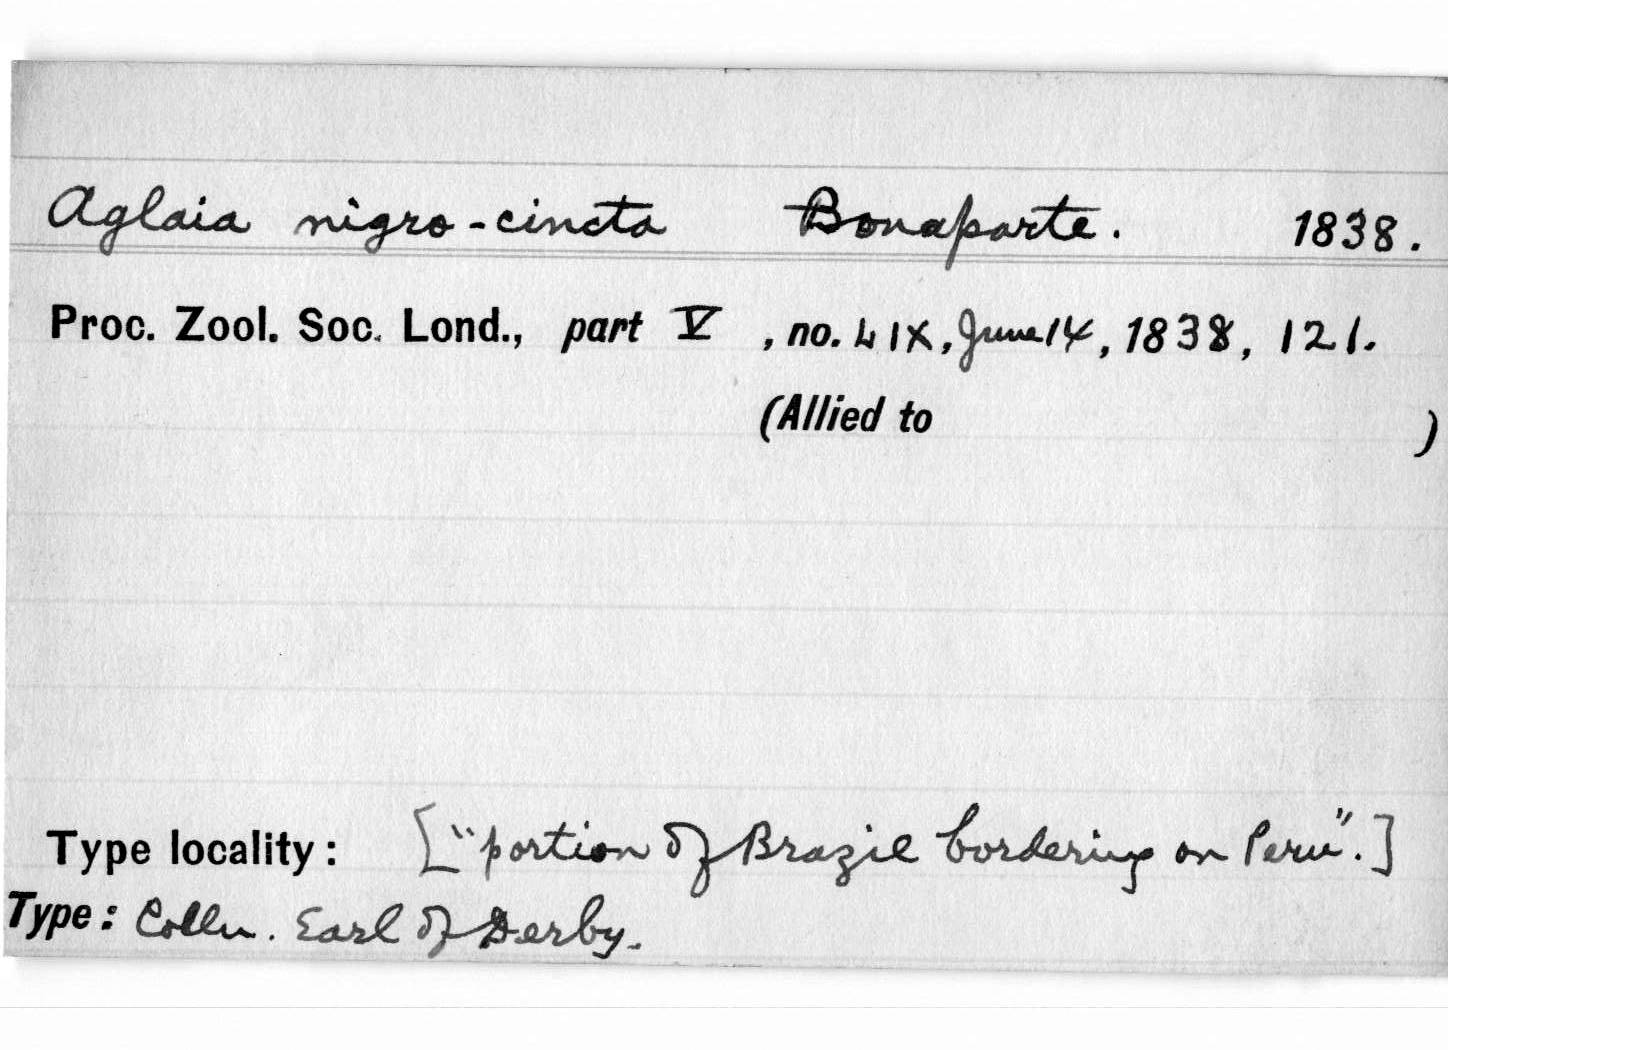 Aglaia nigro-cincta Bonaparte. 1838.
Proc. Zool. Soc. Lond., part V, no. LIX, June 14, 1838, 121.
(Allied to )
Type locality: ["portion of Brazil bordering on Peru".]
Type: Colln. Earl of Derby.